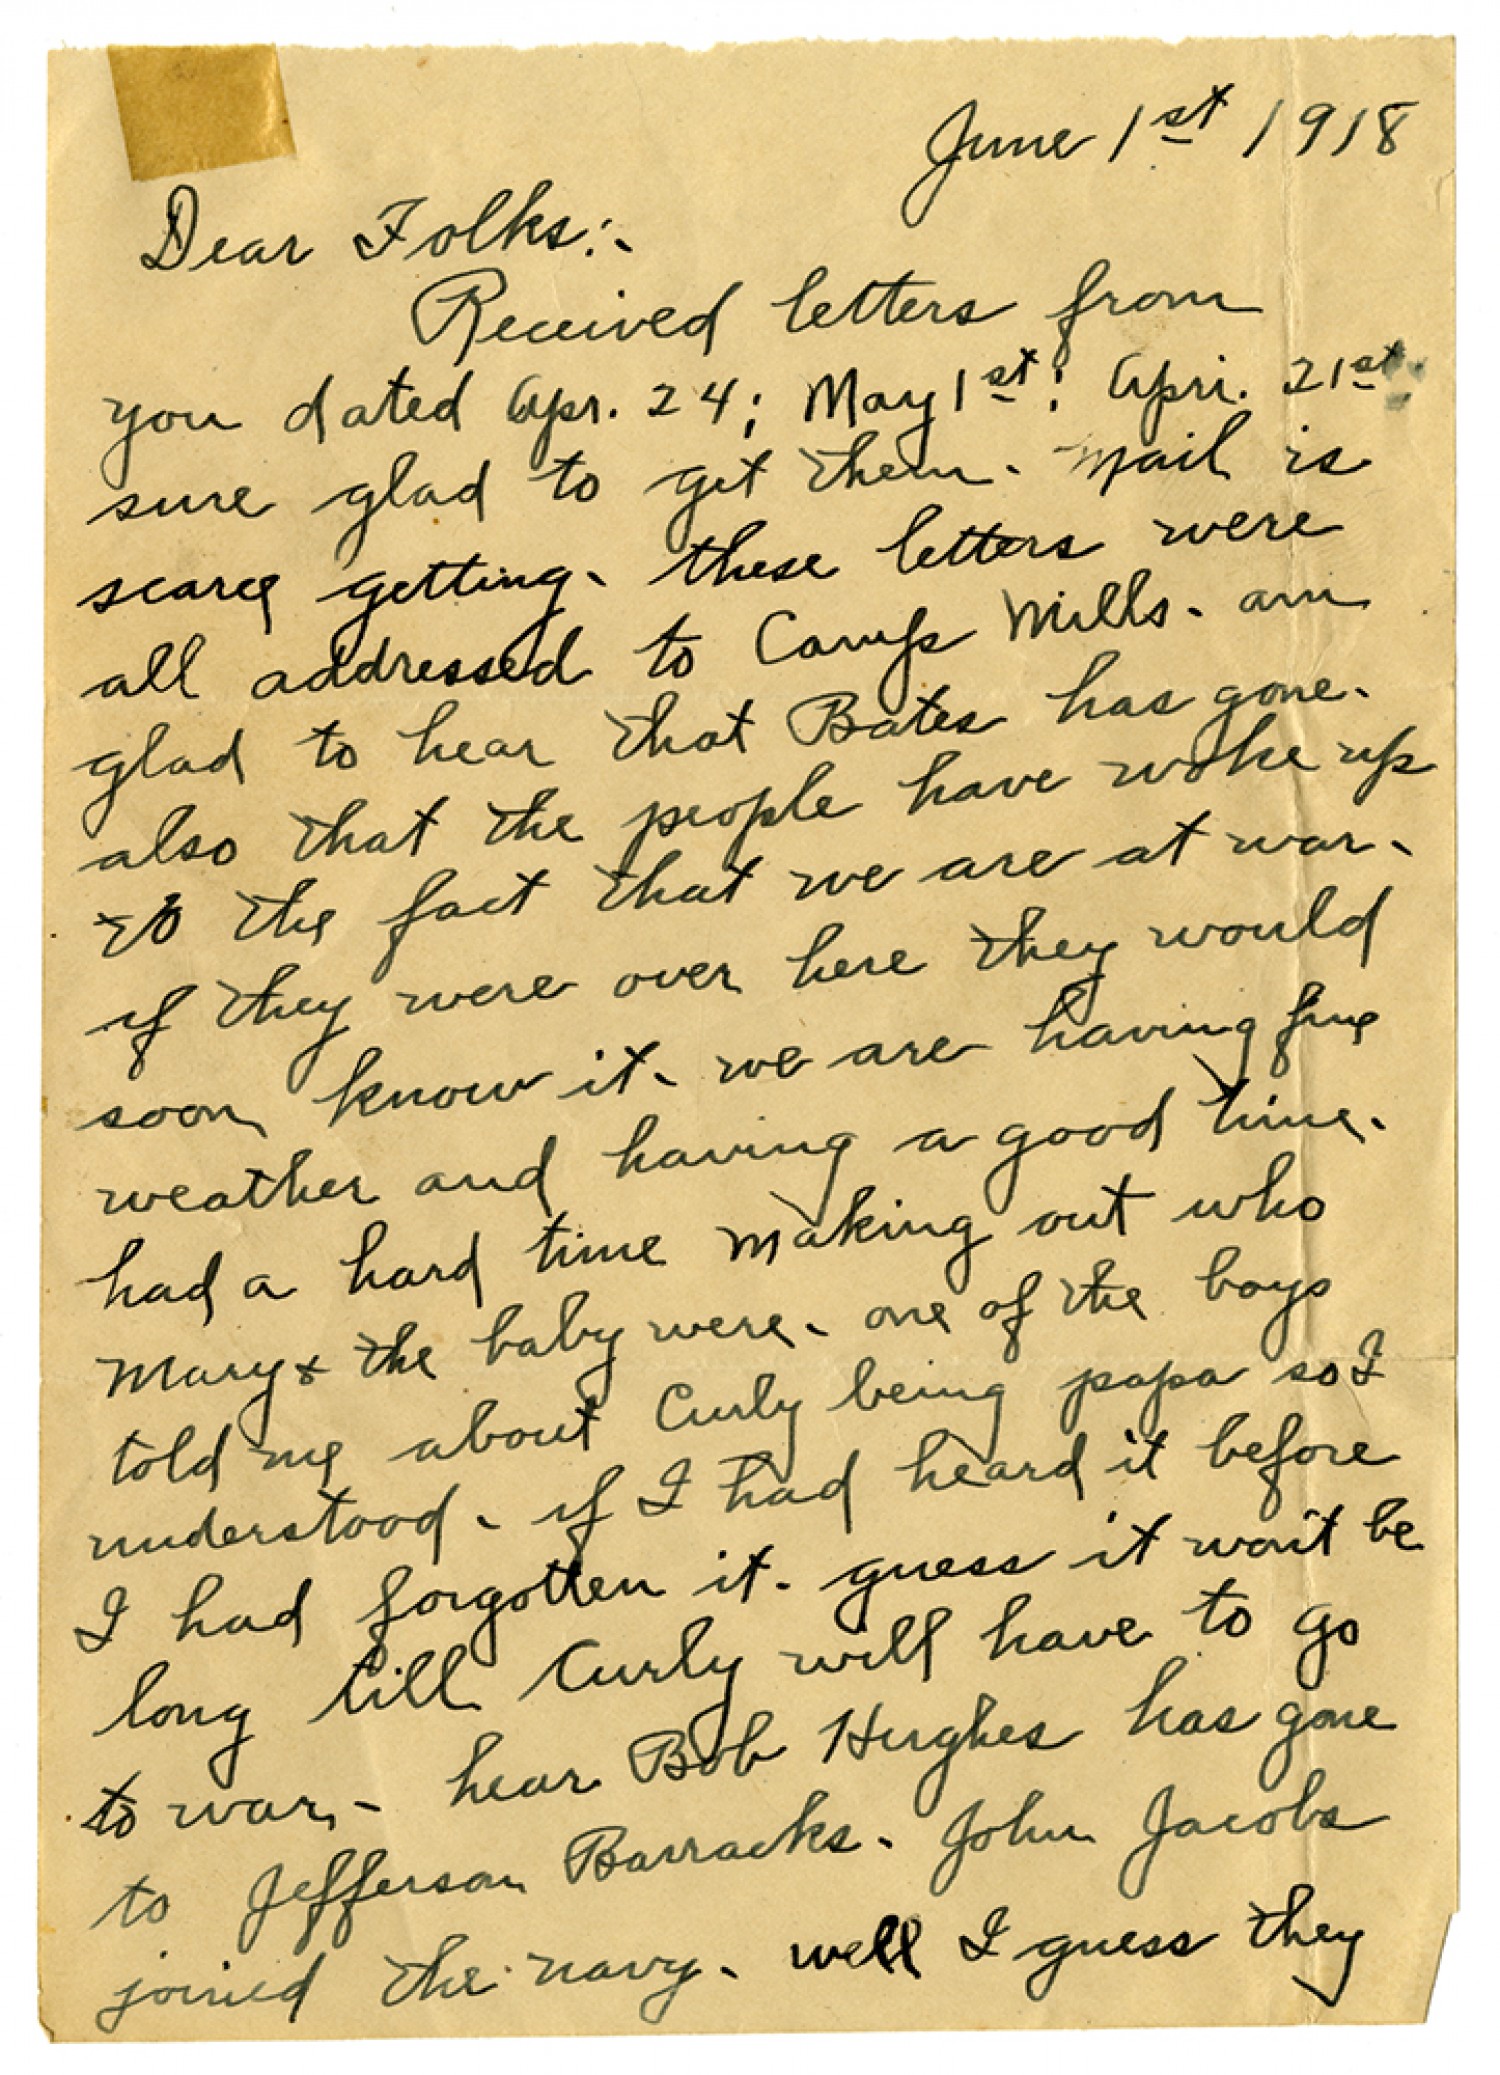 June 1st 1918
Dear Folks:-
Received letters from
you dated Apr. 24; May 1st; Apri. 21st
sure glad to get them. Mail is
scarce getting. these letters were
all addressed to Camp Mills. am
glad to hear that Bates has gone.
also that the people have woke up
to the fact that we are at war.
if they were over here they would
soon know it. we are having fine
weather and having a good time.
had a hard time making out who
Mary & the baby were. one of the boys
told me about Curly being papa so I
understood. if I had heard it before
I had forgotten it. guess it won't be
long till Curly will have to go
to war. hear Bob Hughes has gone
to Jefferson Barracks. John Jacobs
joined the navy. well I guess they